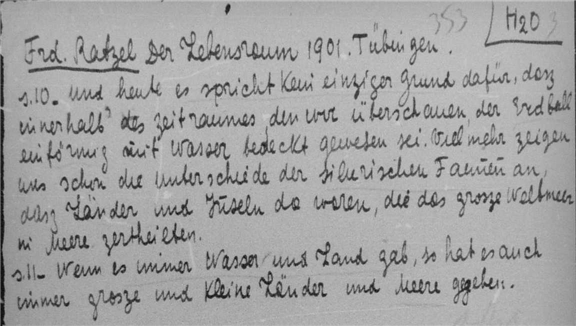 353
H2O 3
Frd. Ratzel Der Lebensraum 1901. Tübingen.
s.10_ und heute es spricht kein einziger Grund dafür, dasz
innerhalb des Zeitraumes, den wir überschauen, der Erdball
einförmig mit Wasser bedeckt gewesen sei. Vielmehr zeigen
uns schon die Unterschiede der silurischen Faunen an,
dasz Länder und Inseln da waren, die das grosze Weltmeer
in Meere zertheilten.
s.11_ Wenn es immer Wasser und Land gab, so hat es auch
immer grosze und kleine Länder und Meere gegeben.